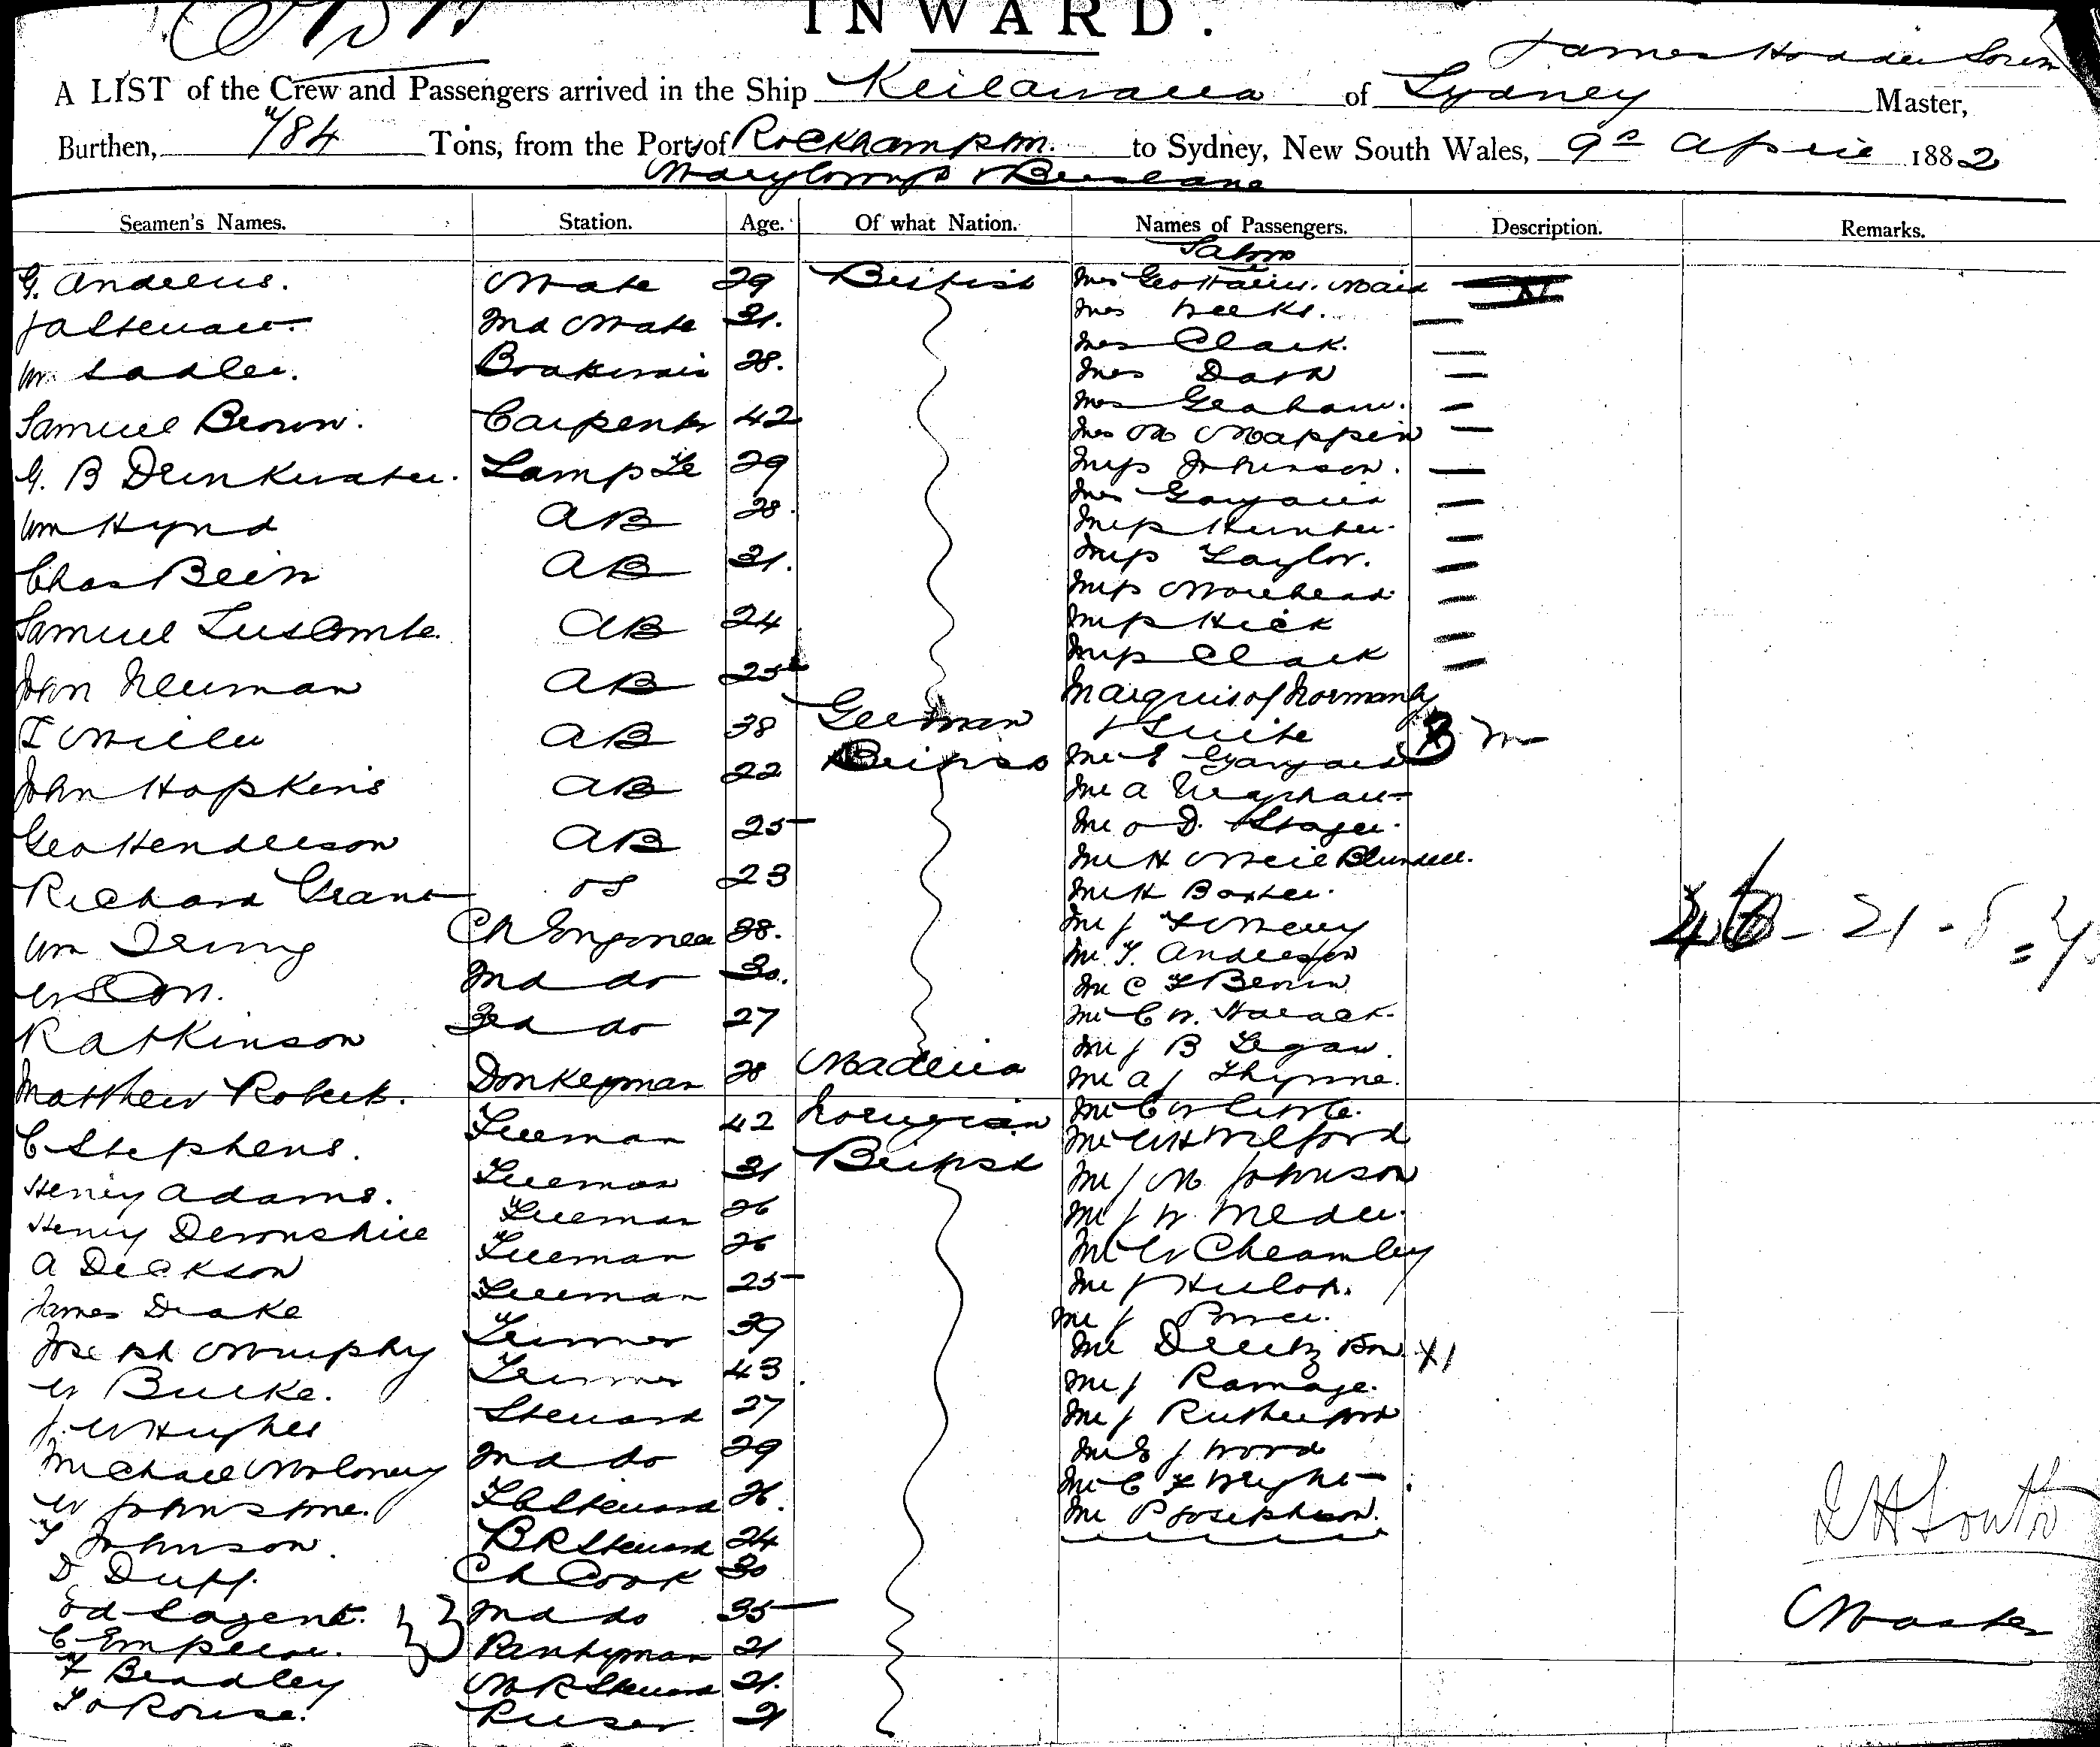 INWARD.
James Hodder South
A LIST of the Crew and Passengers arrived in the Ship Keilawarra of Sydney Master,
Burthen, 784 Tons, from the Port of Rockhampton. to Sydney, New South Wales, 9th April 1882
Maryborough & Brisbane
Seamen's Names. Station. Age. Of what Nation. Names of Passengers. Description. Remarks.
Saloon
G. Andrews. Mate 29 British Mrs Geo Harris. Maid
J A Stewart 2nd Mate 31. Mrs Weeks.
Mrs Clark.
W. Sadler. 28. Mrs Dash
Mrs Graham.
Samuel Brown. Carpenter 42 Mrs M Mappin
G. B Drinkwater. Lamp Tr 29 Miss Johnson.
Mrs
Wm Hynd AB 28. Miss Hunter.
Chas Bein AB 31. Miss Taylor.
Miss Morehead.
Samuel Luscombe. AB 24 Miss Hick
Miss Clark
John Newman AB 25 Marquis of Normanby
T Miller AB 38 German & Suite 3 m
British Mr
John Hopkins AB 22 Mr A
Geo Henderson AB 25 Mr O D.
Mr H Blundell.
Richard Grant OS 23 Mr H Baxter.
Wm Irving Ch Engineer 38. Mr J
Mr T. Anderson
2nd do 30. Mr C F Brown
R Atkinson 3rd do 27 Mr C W.
Mr J B
Matthew Robert. Donkeyman 28 Madeira Mr A J Thynne.
C Stephens. Fireman 42 Norwegian Mr C W Little.
Mr W H Wilford
Henry Adams. Fireman 31 British Mr J M Johnson
Henry Devonshire Fireman 26 Mr J W.
A Dickson Fireman 26 Mr W Cheamley
James Drake Fireman 25 Mr J
Mr J
Joseph Murphy Trimmer 39 Mr X1
W Burke. Trimmer 43 Mr J Ramage.
J. W Hughes Steward 27 Mr J Rutherford
Michael Moloney 2nd do 29 Mr E J Wood
W Johnstone. F C Steward 26. Mr C F Wright
T Johnson. B R Steward 24 Mr P Josephson.
D Duff. Ch Cook 30
Ed Sagent. 2nd do 35
33
C Emperor. Pantryman 21
F Bradley M R Steward 21.
T O Rouse. 21
J H South
Master